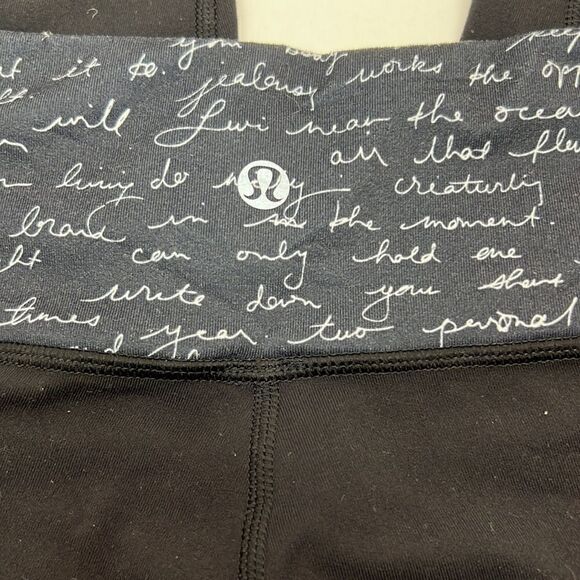 it to. jealousy works the opp
will Livi near the ocea
all that
living do creativity
brain in the moment.
can only hold one
write down your short
times year. two personal